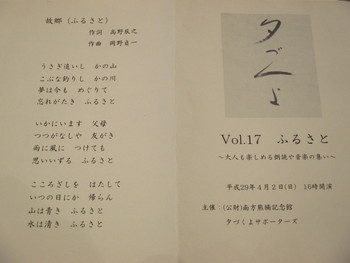 故郷（ふるさと）
作詞　高野辰之
作曲　岡野貞一
うさぎ追いし　かの山
こぶな釣りし　かの川
夢は今も　めぐりて
忘れがたき　ふるさと
いかにいます　父母
つつがなしや　友がき
雨に風に　つけても
思いいずる　ふるさと
こころざしを　はたして
いつの日にか　帰らん
山は青き　ふるさと
水は清き　ふるさと
夕づくよ
Vol.17　ふるさと
～大人も楽しめる朗読や音楽の集い～
平成29年４月２日(日)　16時開演
主催：(公財)南方熊楠記念館
夕づくよサポーターズ